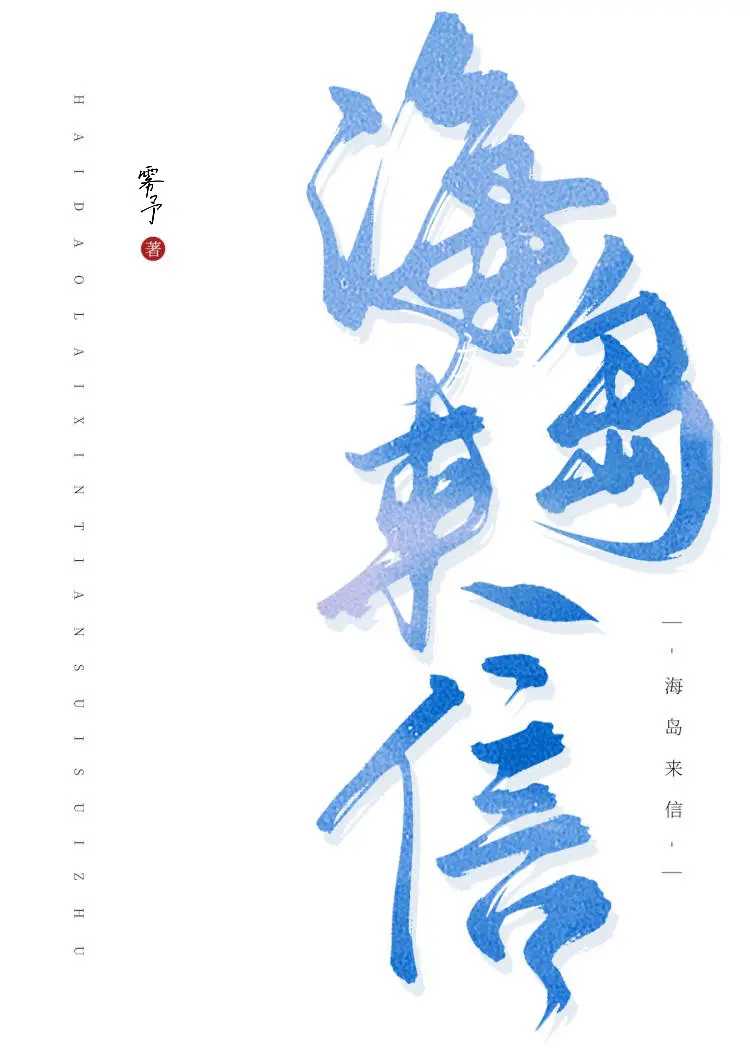 海岛来信
雾予
著
HAIDAOLAIXINTIANSUISUIZHU
-海岛来信-